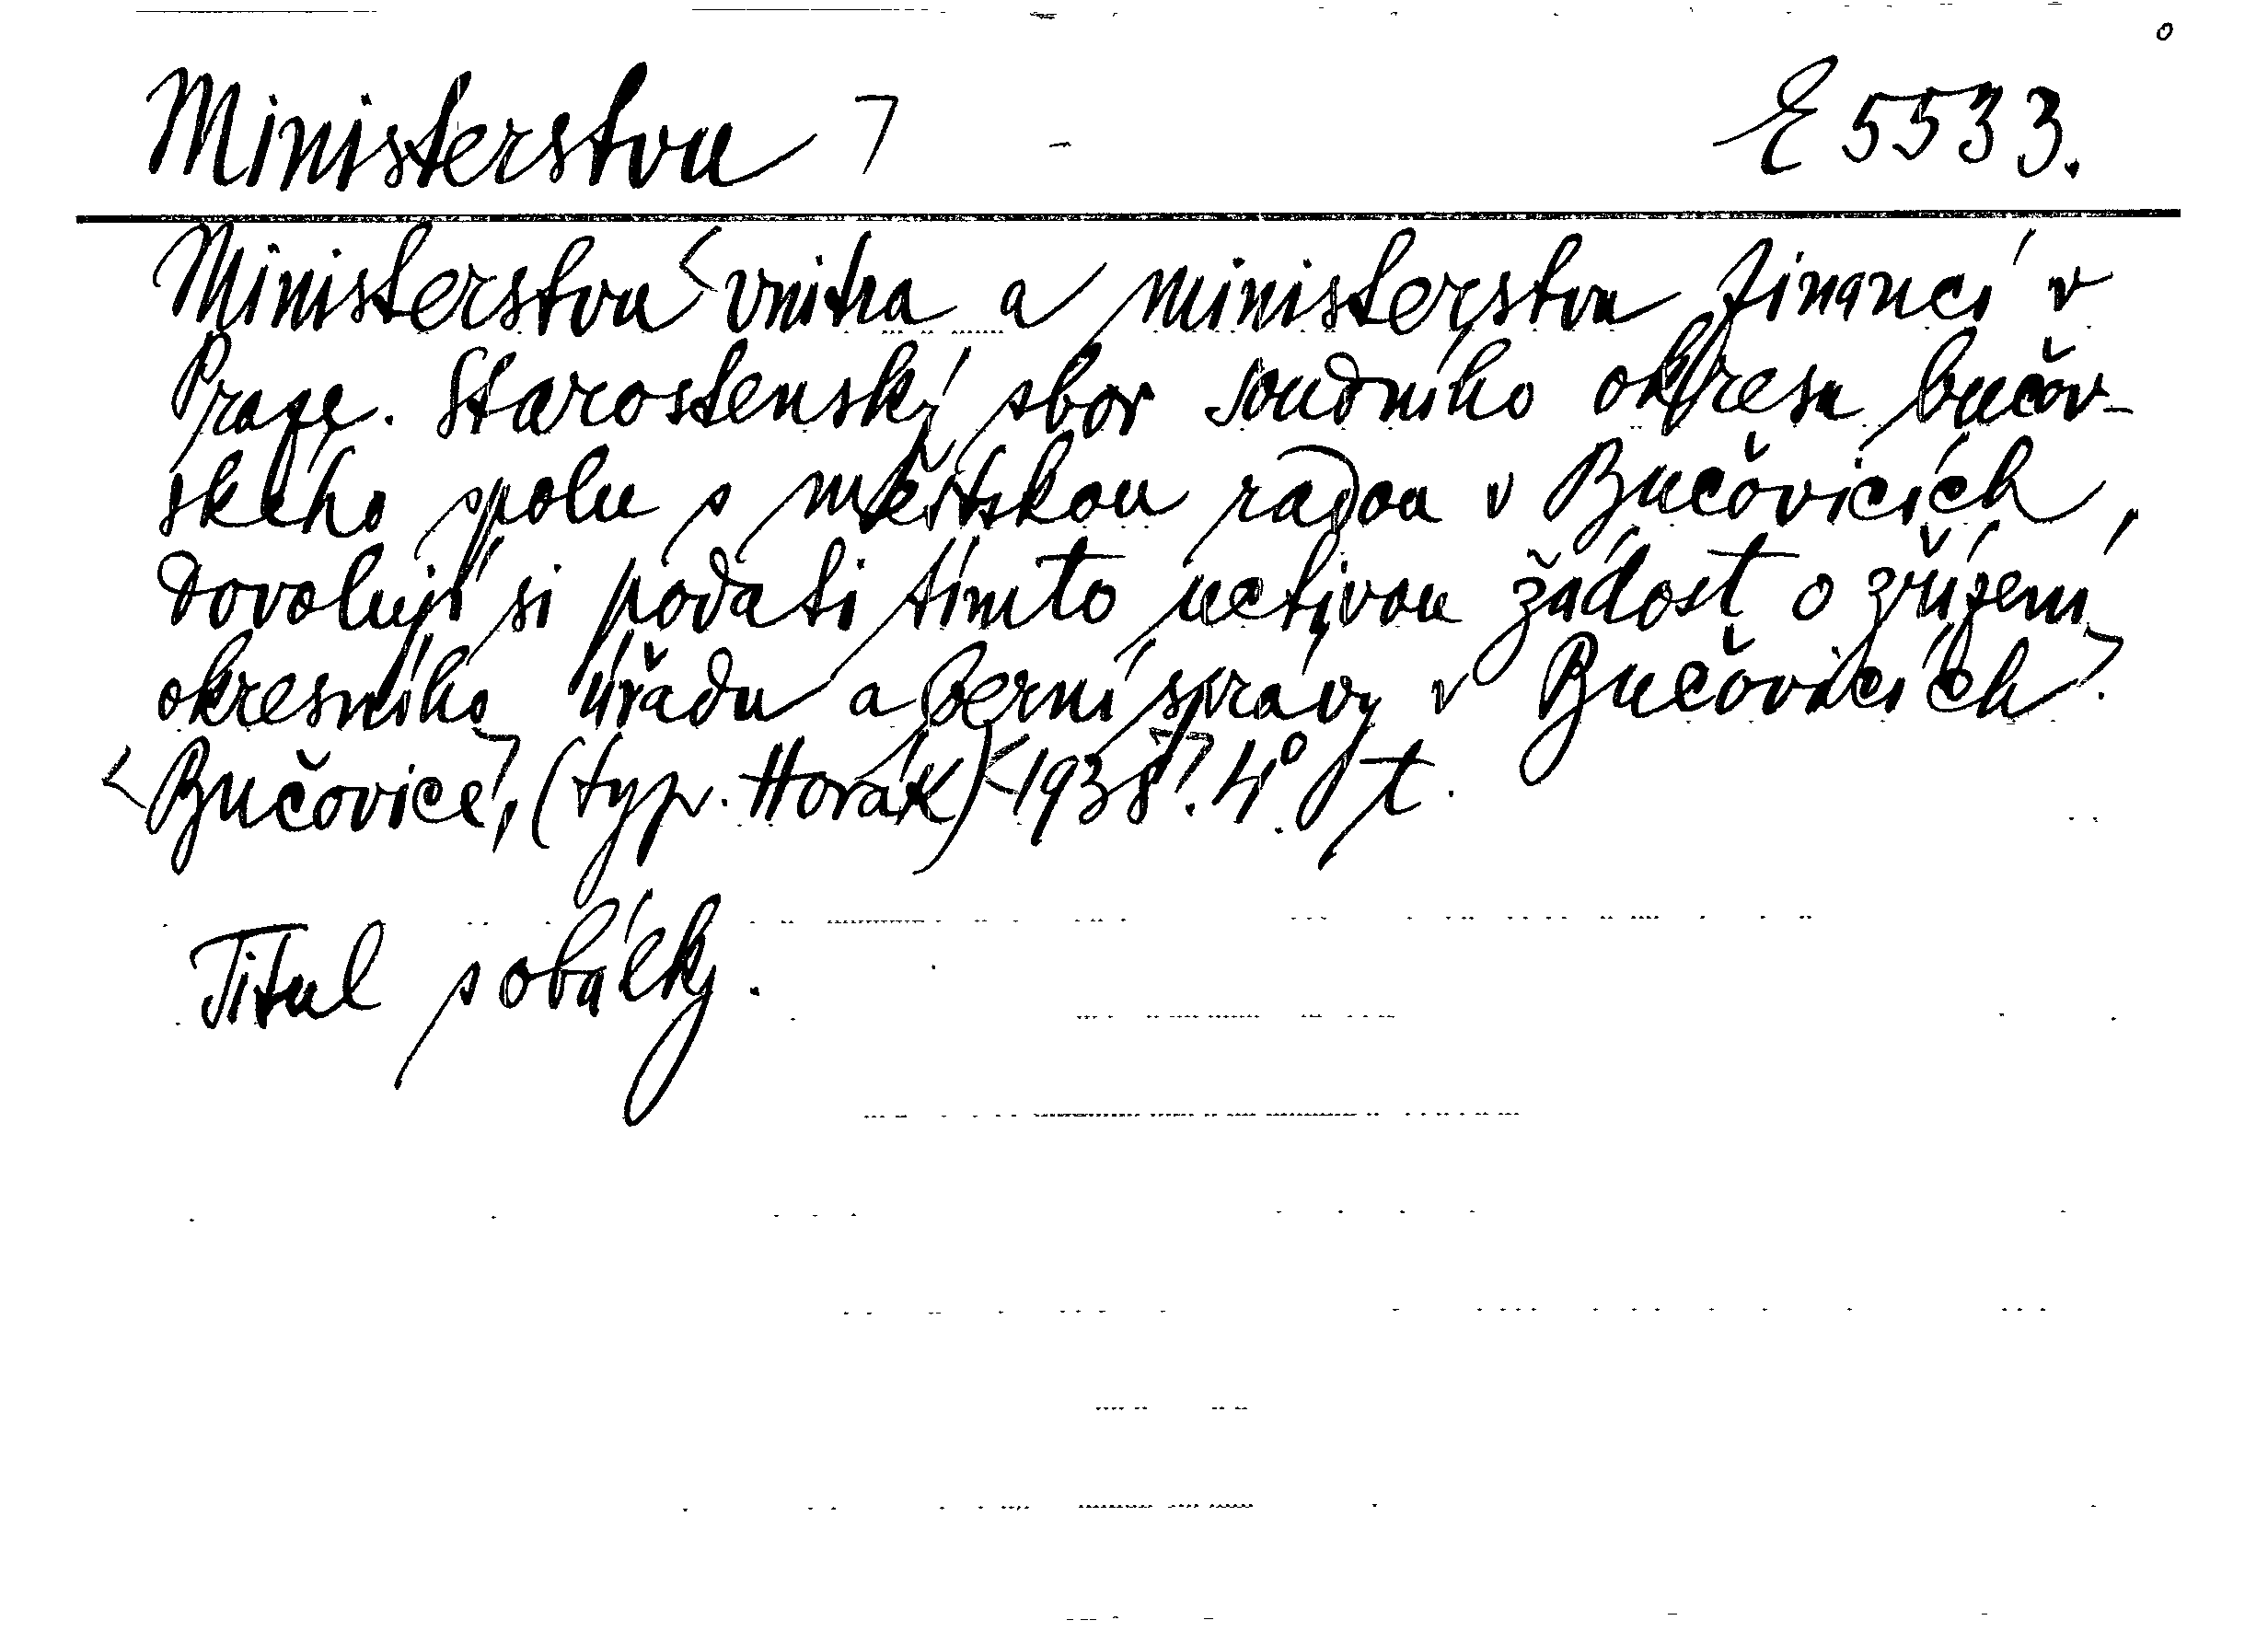 Ministerstvu ㄱ E 5533.
Ministerstvu < vnitra a ministerstvu financí v
Praze. Starostenský sbor soudního okresu bučov-
ského spolu s městskou radou v Bučovicích,
dovolují si podati tímto uctivou žádost o zřízení
okresního úřadu a berní správy v Bučovicích.
<Bučovice, (typ. Horák) <1938>. 4°. t.
Titul s obálky.